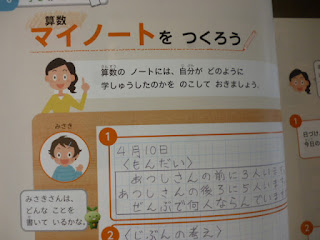 算数
マイノートを つくろう
算数の ノートには、自分が どのように
学しゅうしたのかを のこして おきましょう。
みさき
1
4月10日
〈もんだい〉
あつしさんの前に3人いま
あつしさんの後ろに5人いま
ぜんぶで何人ならんでいま
みさきさんは、
どんな ことを
書いて いるかな。
2
〈じぶんの考え〉
日づけ
今日の